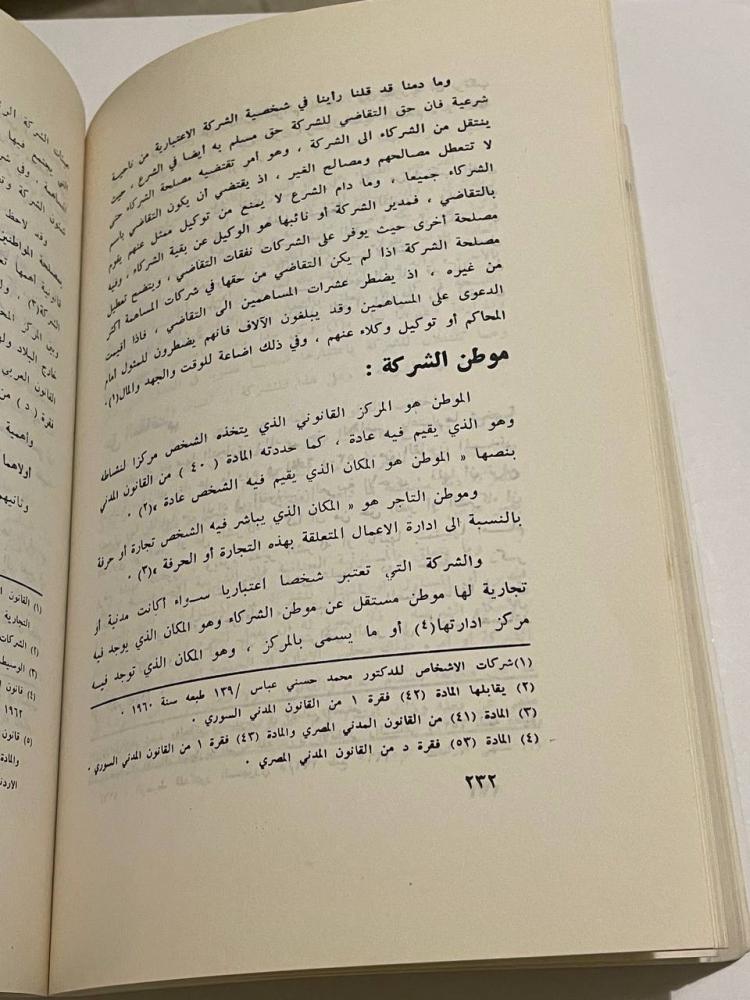 وما دمنا قد قلنا رأينا في شخصية الشركة الاعتبارية من ناحية
شرعية فان حق التقاضي للشركة حق مسلم به أيضا في الشرع ، حيث
ينتقل من الشركاء الى الشركة ، وهو أمر تقتضيه مصلحة الشركاء حتى
لا تتعطل مصالحهم ومصالح الغير ، اذ يقتضي أن يكون التقاضي باسم
الشركاء جميعا ، وما دام الشرع لا يمنع من توكيل ممثل عنهم يقوم
بالتقاضي ، فمدير الشركة أو نائبها هو الوكيل عن بقية الشركاء ، وفيه
مصلحة أخرى حيث يوفر على الشركات نفقات التقاضي ، ويتضح تعطيل
مصلحة الشركة اذا لم يكن التقاضي من حقها في شركات المساهمة أكثر
من غيره ، اذ يضطر عشرات المساهمين الى التقاضي ، فاذا أقيمت
الدعوى على المساهمين وقد يبلغون الآلاف فانهم يضطرون للمثول امام
المحاكم أو توكيل وكلاء عنهم ، وفي ذلك اضاعة للوقت والجهد والمال(١).
موطن الشركة :
الموطن هو المركز القانوني الذي يتخذه الشخص مركزا لنشاطه
وهو الذي يقيم فيه عادة ، كما حددته المادة ( ٤٠ ) من القانون المدني
بنصها « الموطن هو المكان الذي يقيم فيه الشخص عادة »(٢) .
وموطن التاجر هو « المكان الذي يباشر فيه الشخص تجارة أو حرفة
بالنسبة الى ادارة الاعمال المتعلقة بهذه التجارة أو الحرفة »(٣) .
والشركة التي تعتبر شخصا اعتباريا سـواء أكانت مدنية أو
تجارية لها موطن مستقل عن موطن الشركاء وهو المكان الذي يوجد فيه
مركز ادارتها(٤) أو ما يسمى بالمركز ، وهو المكان الذي توجد فيـه
(١)شركات الاشخاص للدكتور محمد حسني عباس /١٣٩ طبعه سنة ١٩٦٠ .
(٢) يقابلها المادة (٤٢) فقرة ١ من القانون المدني السوري .
(٣) المادة (٤١) من القانون المدني المصري والمادة (٤٣) فقرة ١ من القانون المدني السوري .
(٤) المادة (٥٣) فقرة د من القانون المدني المصري .
٢٣٢
الشركة
يجتمع فيها
شئون الشركة
وقد لاحظ
مصلحة المواطنين
قانونية اهمها
الشركة(٣) ،
وبين المركز
خارج البلاد
القانون العربي
فقرة ( د ) من
وأهمية
أولاهما
وثانيهم
(١) القانون
التجارية
(٢) الشركات
(٣) الوسيط
(٤) قانون
١٩٦٢
(٥) قانون
والمادة
الاردني